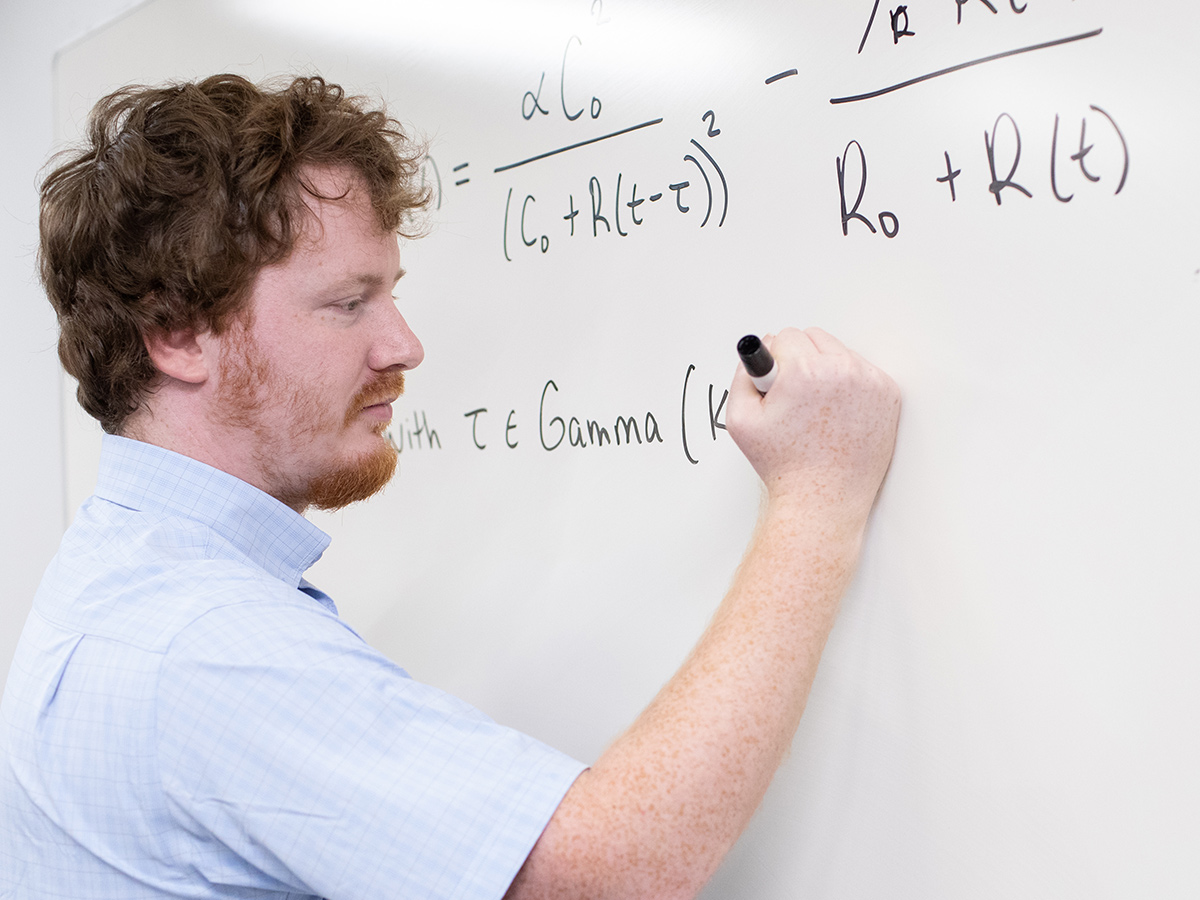 ) = αC₀² / (C₀ + R(t-τ))² - / R₀ + R(t)
with τ ∈ Gamma (K